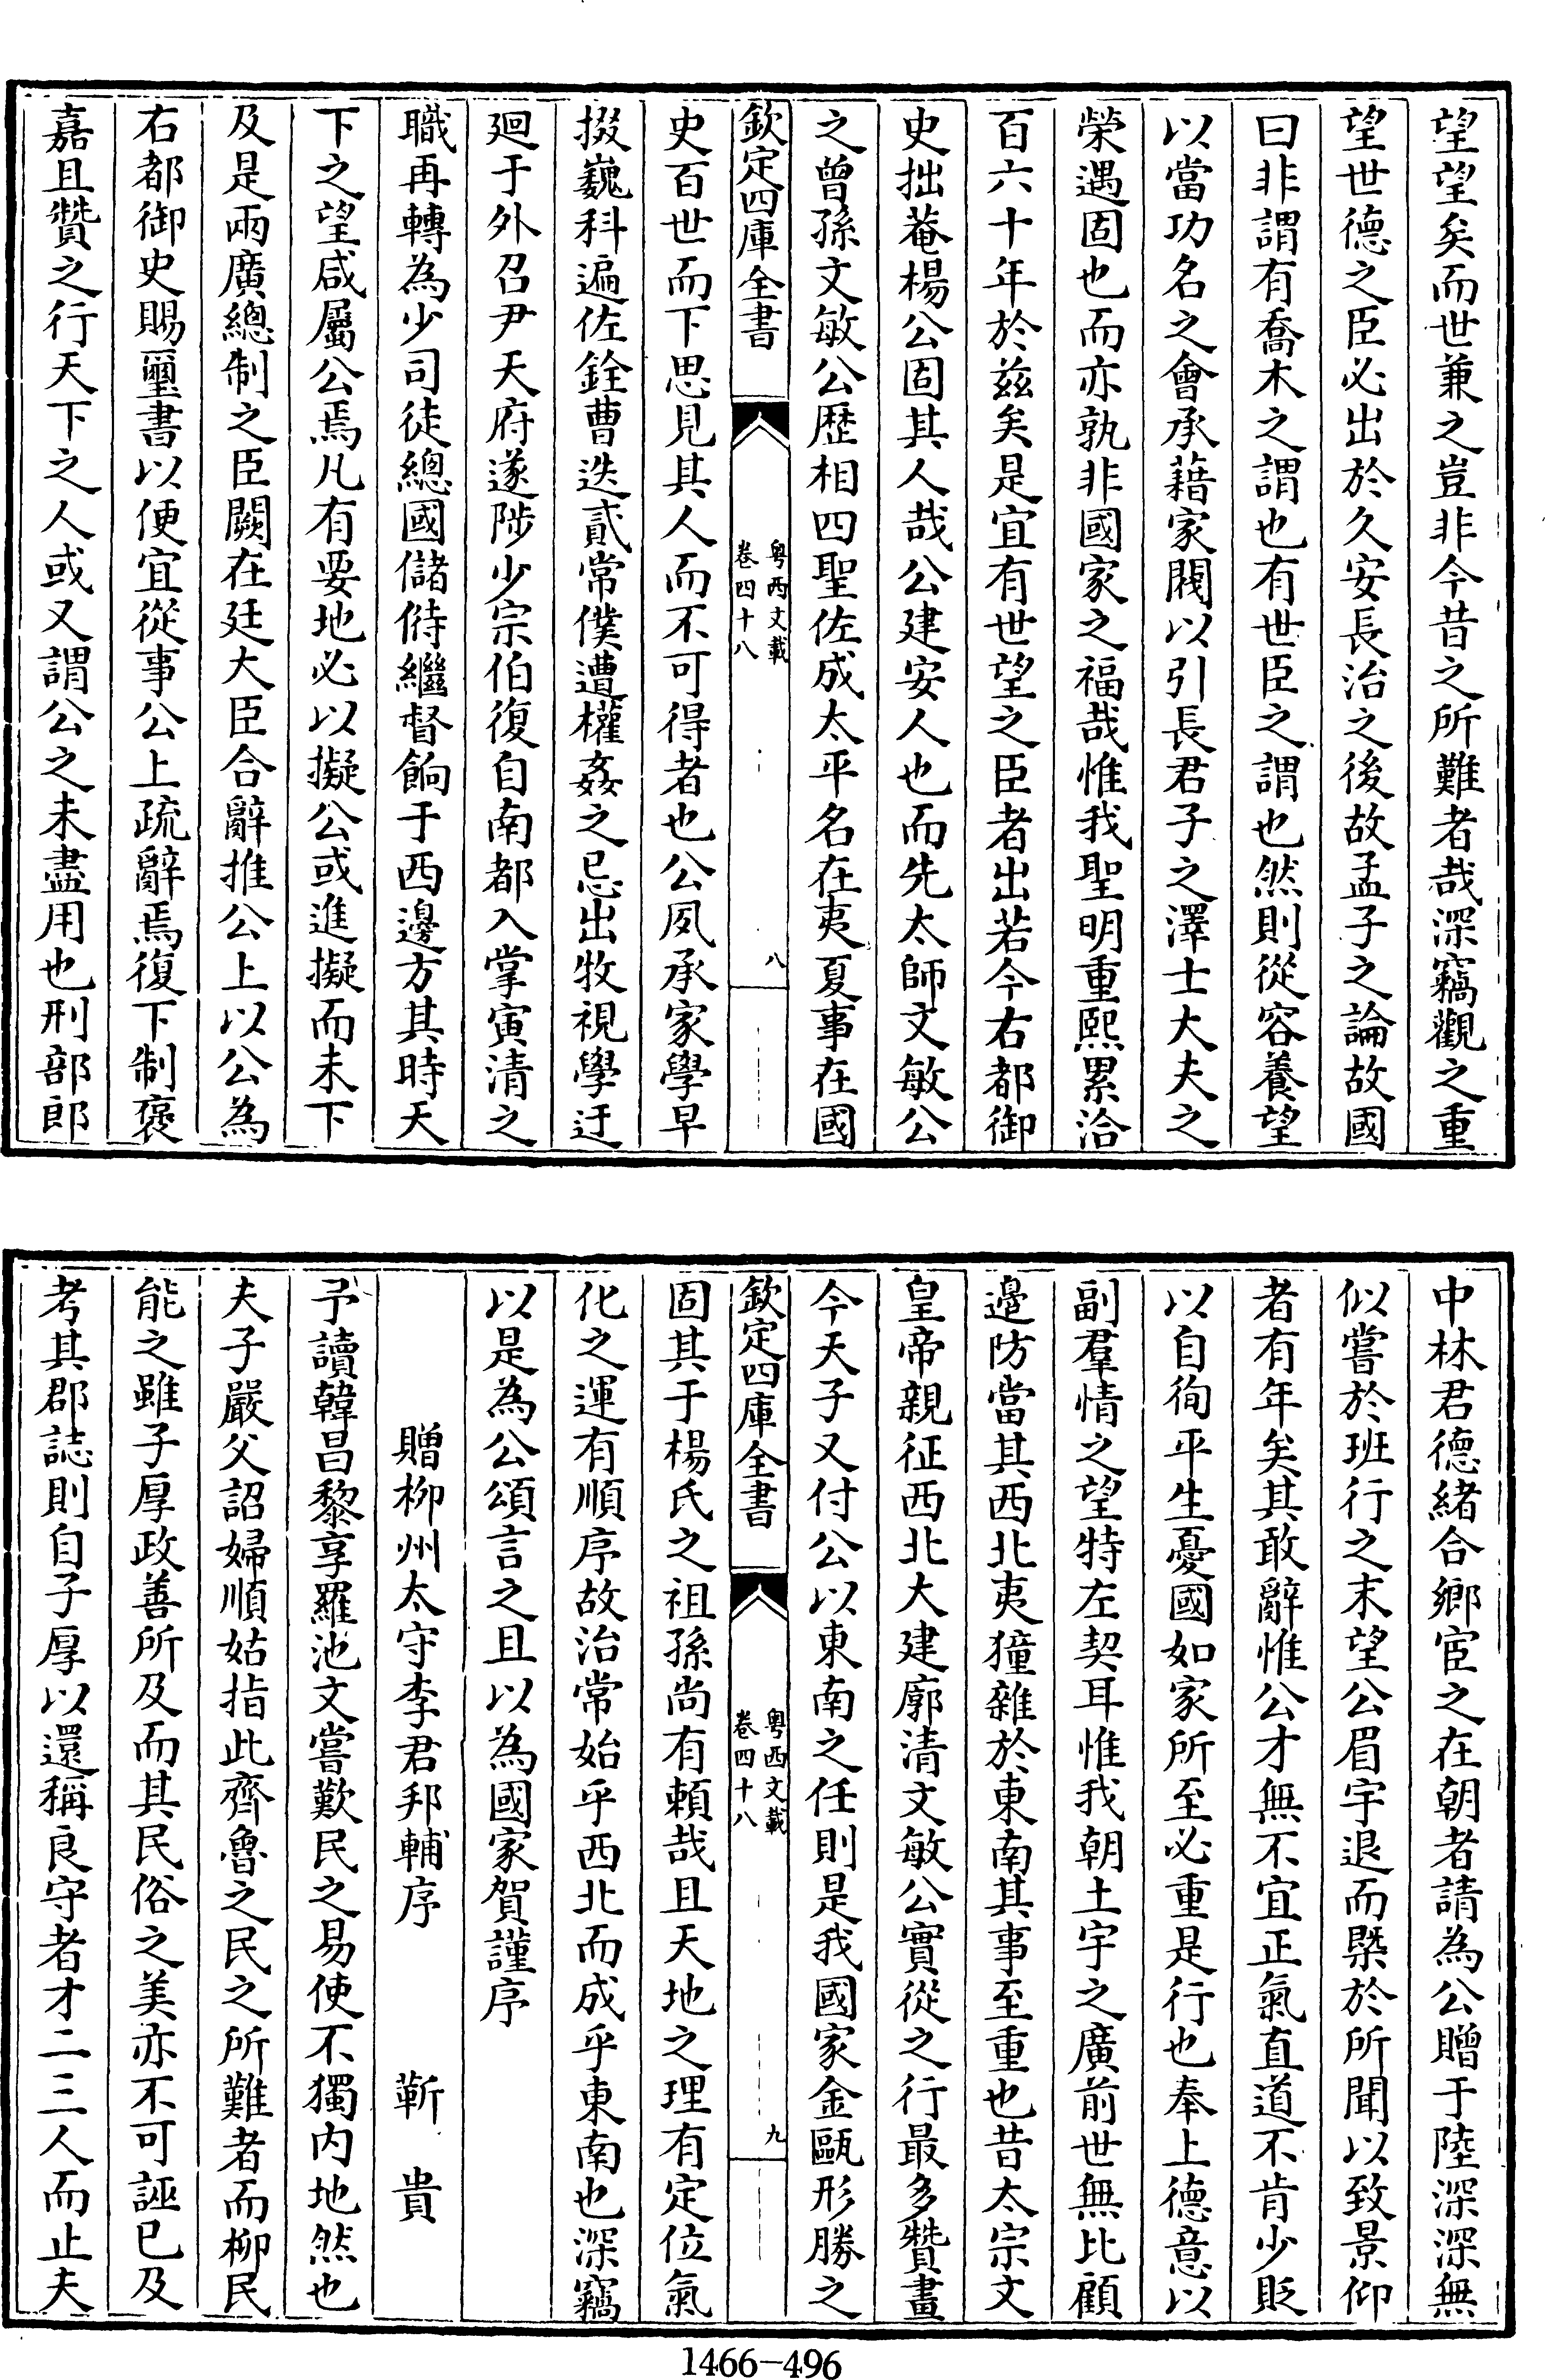 望望矣而世兼之豈非今昔之所難者哉深竊觀之重
望世德之臣必出於久安長治之後故孟子之論故國
曰非謂有喬木之謂也有世臣之謂也然則從容養望
以當功名之會承藉家閥以引長君子之澤士大夫之
榮遇固也而亦孰非國家之福哉惟我聖明重熙累洽
百六十年於兹矣是宜有世望之臣者出若今右都御
史拙菴楊公固其人哉公建安人也而先太師文敏公
之曾孫文敏公歴相四聖佐成太平名在夷夏事在國
欽定四庫全書
粤西文載
卷四十八
八
史百世而下思見其人而不可得者也公夙承家學早
掇巍科遍佐銓曹迭貳常僕遭權姦之忌出牧視學迂
廻于外召尹天府遂陟少宗伯復自南都入掌寅清之
職再轉為少司徒總國儲偫繼督餉于西邊方其時天
下之望咸屬公焉凡有要地必以擬公或進擬而未下
及是兩廣總制之臣闕在廷大臣合辭推公上以公為
右都御史賜璽書以便宜從事公上疏辭焉復下制褒
嘉且贊之行天下之人或又謂公之未盡用也刑部郎
中林君德緒合鄉宦之在朝者請為公贈于陸深深無
似嘗於班行之末望公眉宇退而槩於所聞以致景仰
者有年矣其敢辭惟公才無不宜正氣直道不肯少貶
以自徇平生憂國如家所至必重是行也奉上德意以
副羣情之望特左契耳惟我朝土宇之廣前世無比顧
邉防當其西北夷獞雜於東南其事至重也昔太宗文
皇帝親征西北大建廓清文敏公實從之行最多贊畫
今天子又付公以東南之任則是我國家金甌形勝之
欽定四庫全書
粤西文載
卷四十八
九
固其于楊氏之祖孫尚有頼哉且天地之理有定位氣
化之運有順序故治常始乎西北而成乎東南也深竊
以是為公頌言之且以為國家賀謹序
贈柳州太守李君邦輔序 靳貴
予讀韓昌黎享羅池文嘗歎民之易使不獨内地然也
夫子嚴父詔婦順姑指此齊魯之民之所難者而柳民
能之雖子厚政善所及而其民俗之美亦不可誣已及
考其郡誌則自子厚以還稱良守者才二三人而止夫
1466-496